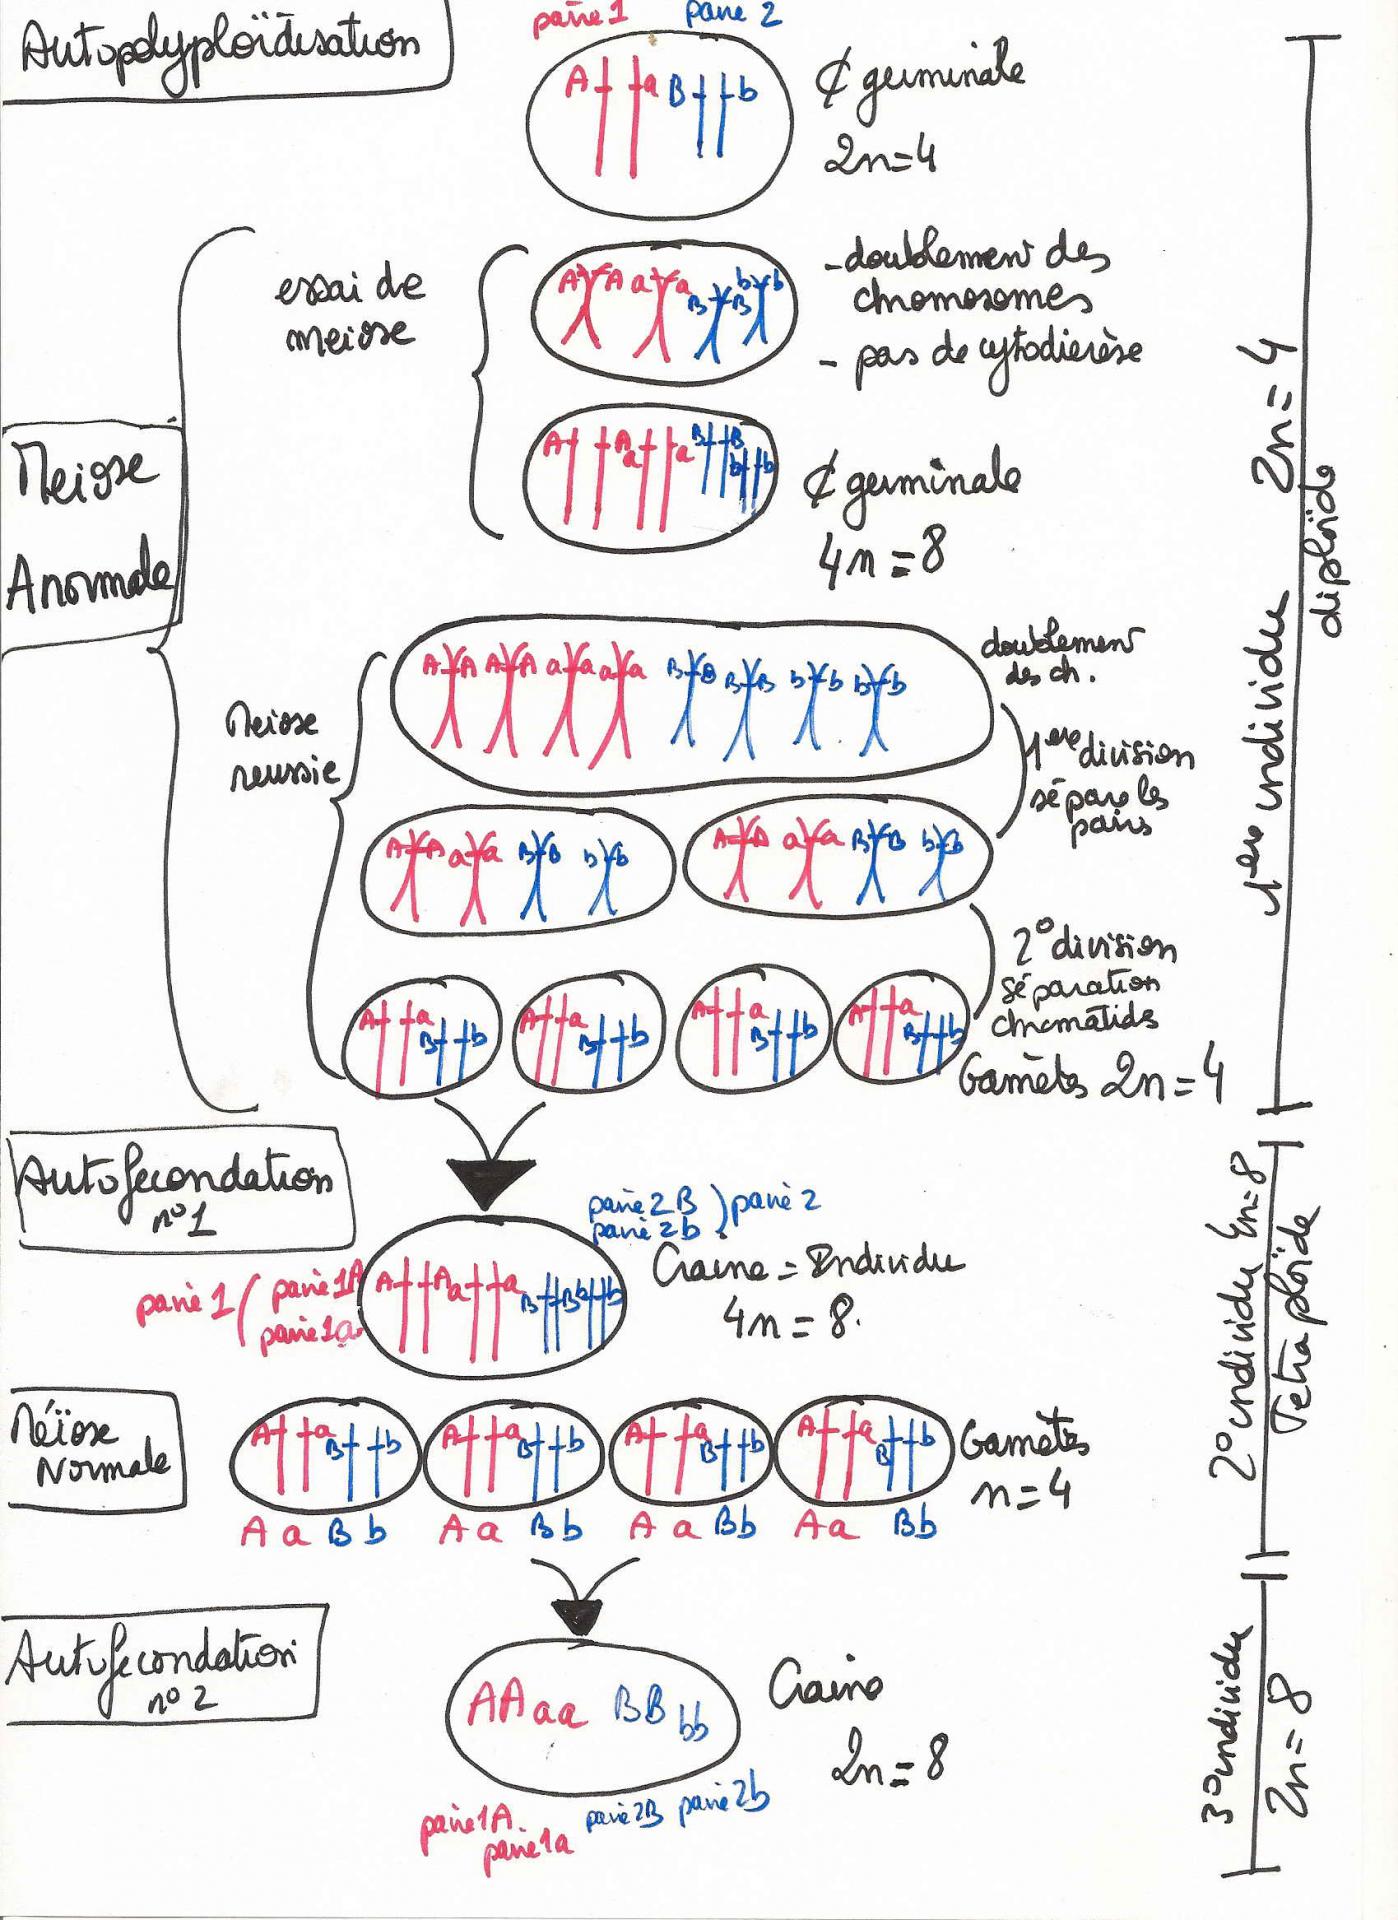 Autopolyploïdisation
paire 1 paire 2
A a B b
¢ germinale
2n=4
essai de
meiose
A A a a B B b b
- doublement des
chromosomes
- pas de cytodierèse
Meiose
Anormale
A A a a B B b b
¢ germinale
4n = 8
1ere individu 2n = 4
diploïde
Meiose
reussie
A A A A a a a a B B B B b b b b
doublement
des ch.
1ere division
sépare les
pairs
A A a a B B b b
A A a a B B b b
2° division
séparation
chromatids
A a B b
A a B b
A a B b
A a B b
Gamètes 2n = 4
Autofecondation
n° 1
paire 2B ) paire 2
paire 2b
paire 1 ( paire 1A
paire 1a
A A a a B B b b
Graine = Individu
4n = 8.
2° individu 4n=8
Tetraploïde
Méïose
Normale
A a B b
A a B b
A a B b
A a B b
Gamètes
n=4
A a B b A a B b A a B b A a B b
Autofecondation
n° 2
AA aa BB bb
Graine
2n = 8
paire 1A. paire 2B paire 2b
paire 1a
3° individu
2n = 8